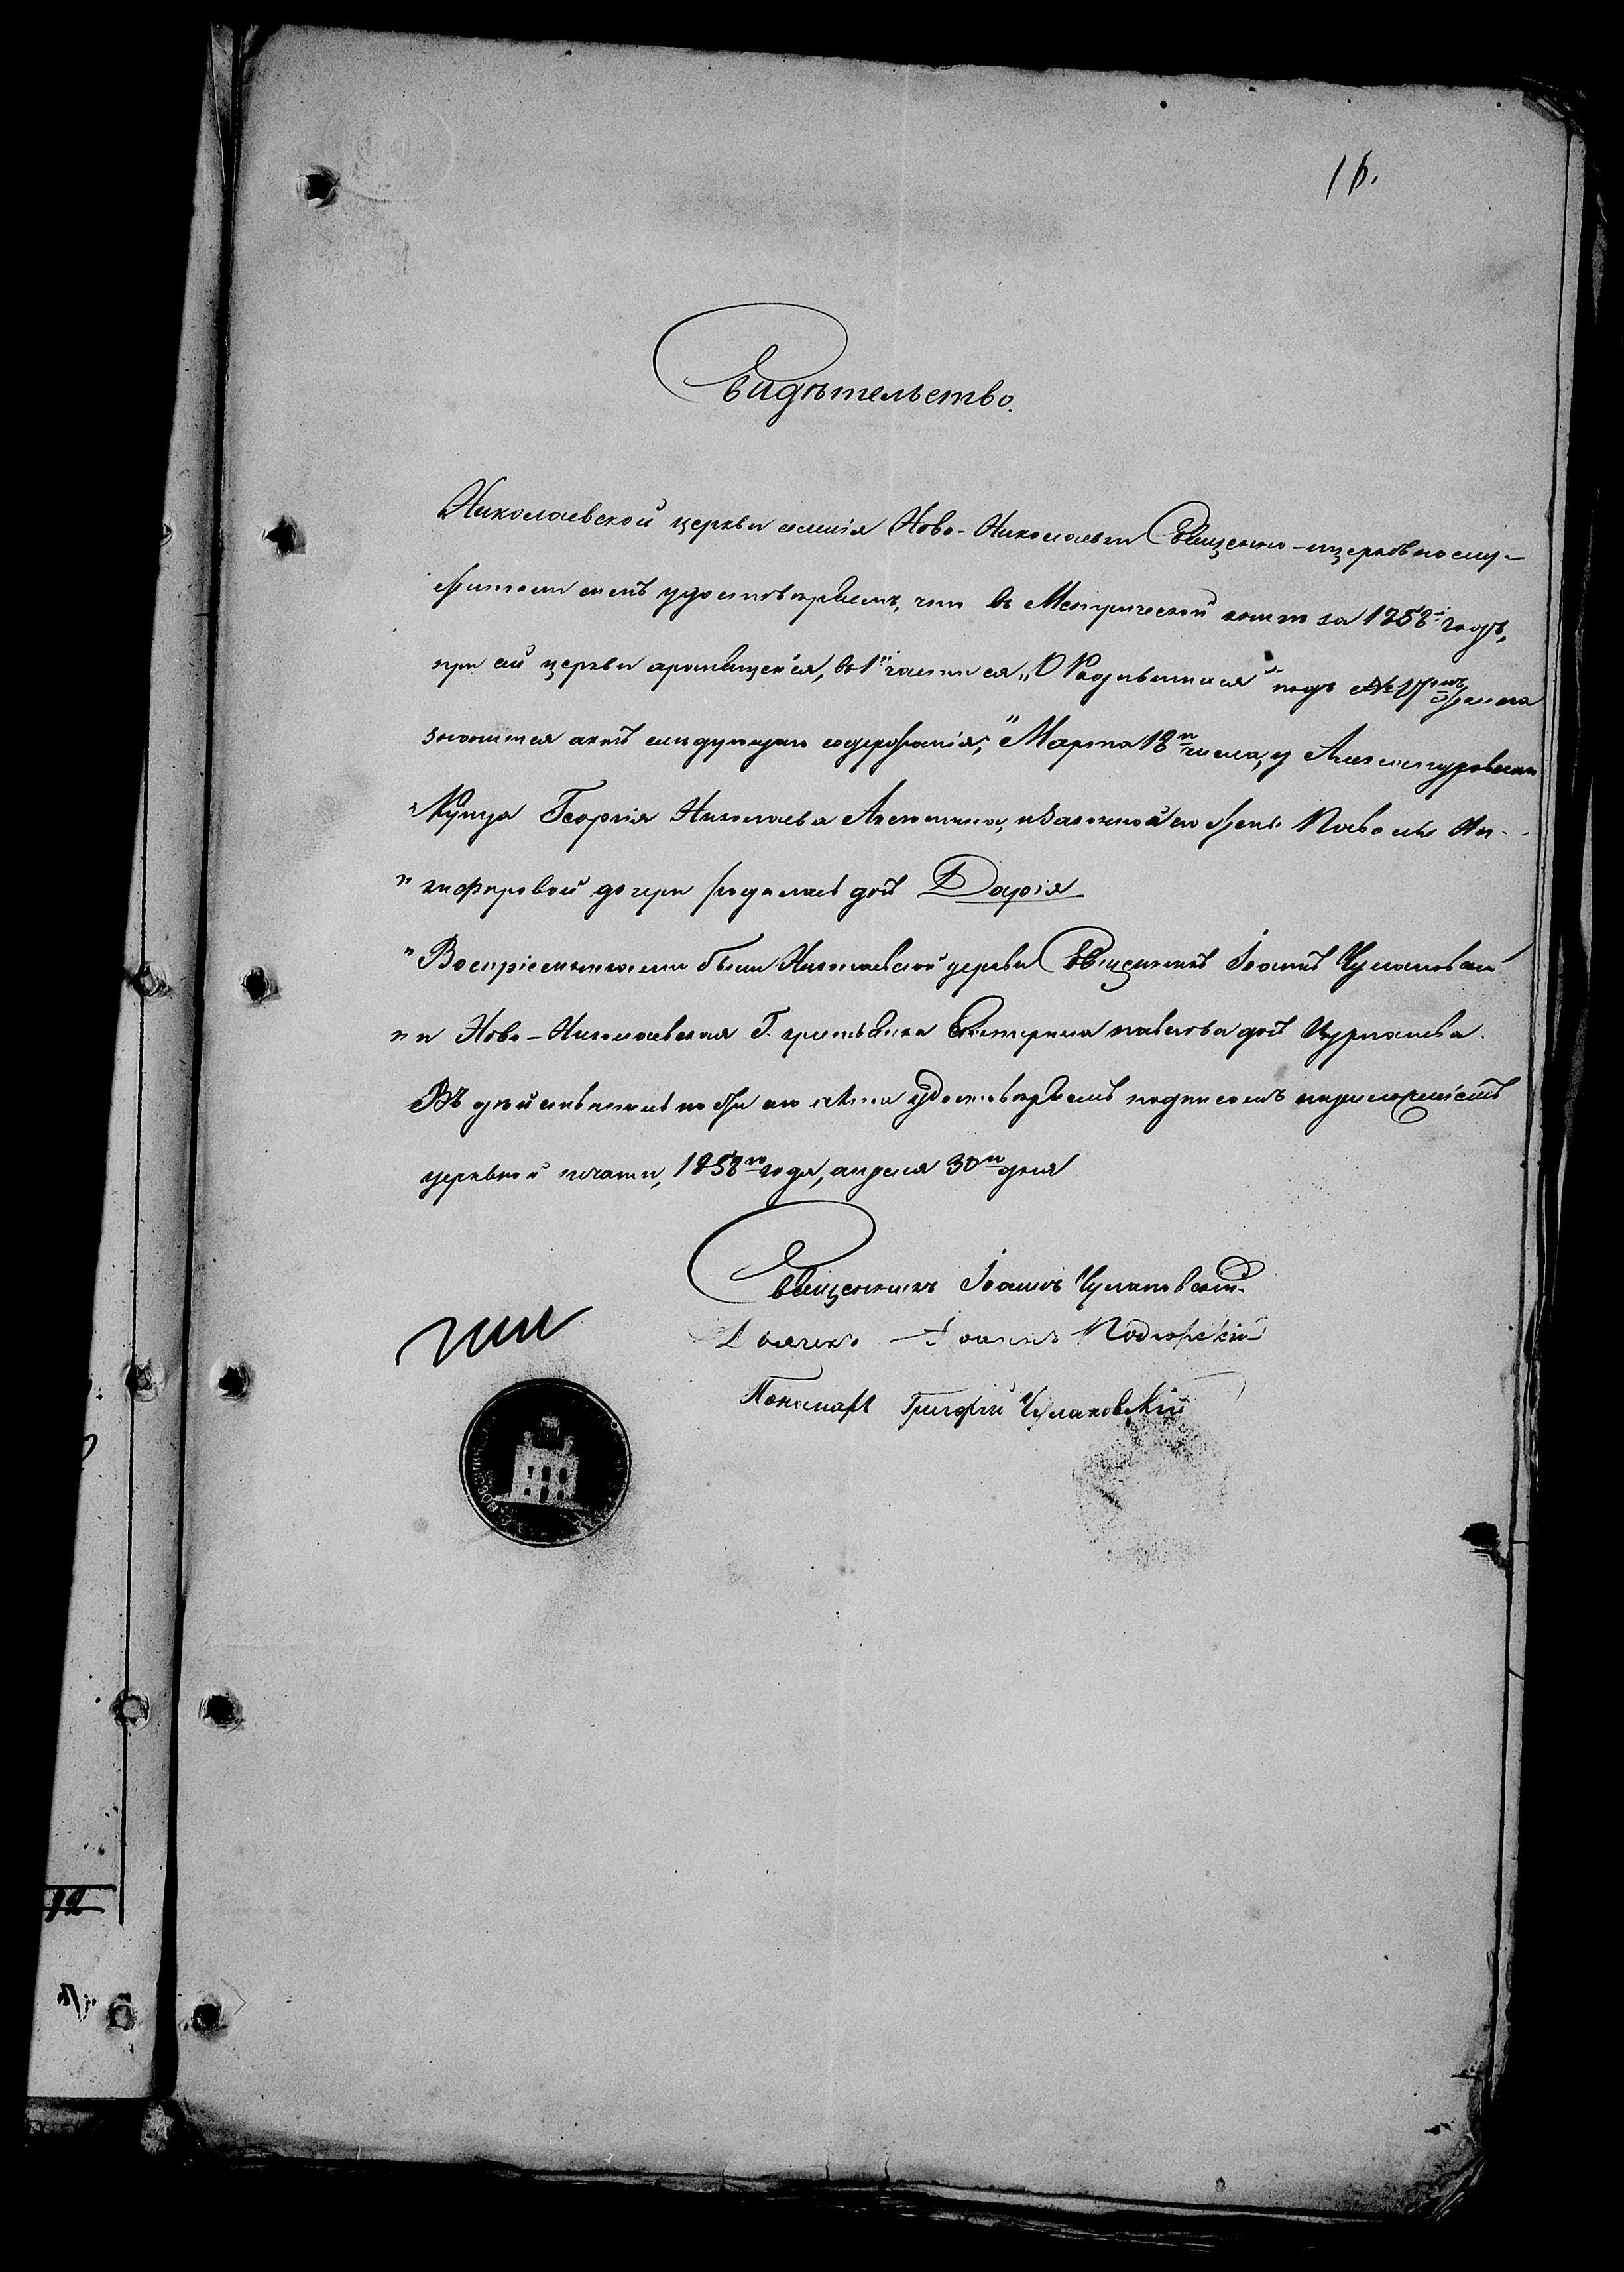 16.
Свидѣтельство.
Николаевской церкви селенія Ново-Николаевки Священно-церковнослу-
жители симъ удостовѣряемъ, что въ Метрической книгѣ за 1858й годъ,
при сей церкви хранящейся, въ 1й части „О Родившихся" подъ №17мъ женска
значится актъ слѣдующаго содержанія; "Марта 18го числа, у
"Купца Георгія Николаева и законной его жены Ни-
" кифоровой дочери родилась дочь Дарія
"Воспріемниками были Николаевской церкви Священникъ Іоаннъ Чулановскій
" и Ново-Николаевская Г. Екатерина Павлова дочь
Въ дѣйствительности сего акта удостовѣряемъ подписомъ и приложеніемъ
церковной печати, 1858го года, апреля 30го дня
Священникъ Іоаннъ Чулановскій.
Дьячекъ Іоаннъ Подгорскій
Пономарь Григорій Чулановскій